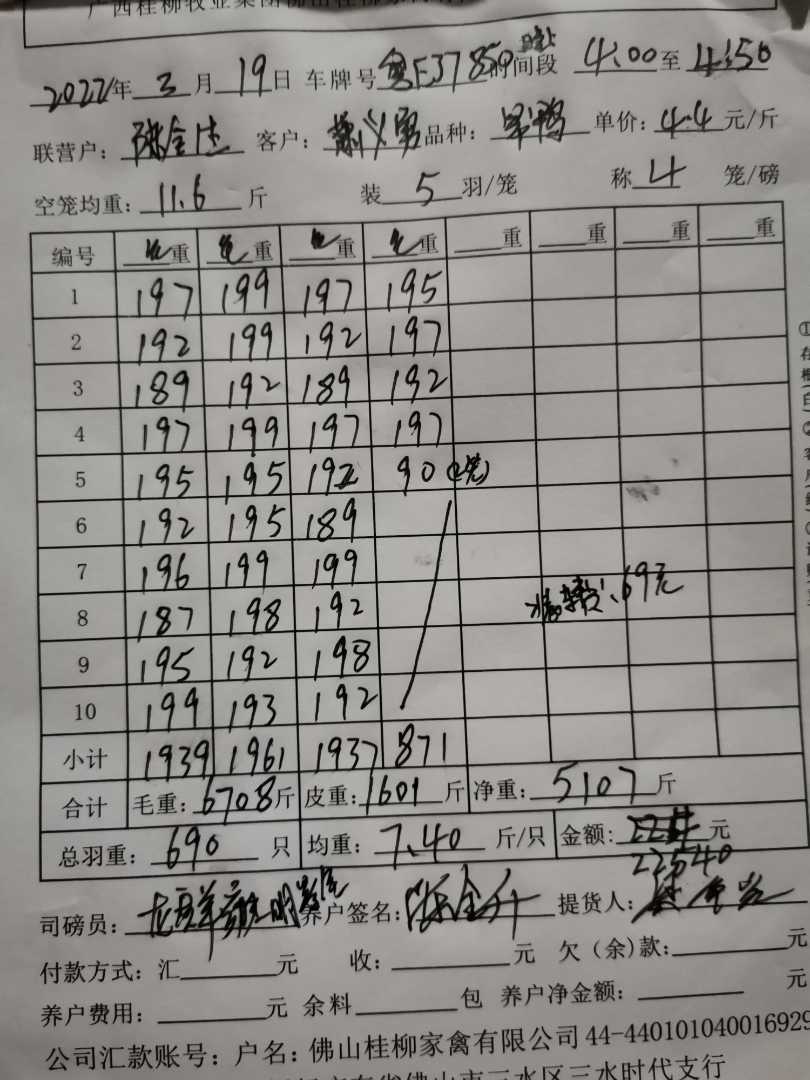 2022年 3 月 19 日 车牌号 粤FJ7850 时间段 4:00 至 4:50
联营户： 陈金 客户： 萧义勇 品种： 单价： 4.4 元/斤
空笼均重： 11.6 斤 装 5 羽/笼 称 4 笼/磅
编号 毛重 毛重 毛重 毛重 重 重 重 重
1 197 199 197 195
2 192 199 192 197
3 189 192 189 192
4 197 199 197 197
5 195 195 192 90 (2笼)
6 192 195 189
7 196 199 199
8 187 198 192 69元
9 195 192 198
10 199 193 192
小计 1939 1961 1937 871
合计 毛重： 6708 斤 皮重： 1601 斤 净重： 5107 斤
总羽重： 690 只 均重： 7.40 斤/只 金额： 元
22540
司磅员： 养户签名： 陈金 提货人：
付款方式：汇 元 收： 元 欠（余）款： 元
养户费用： 元 余料 包 养户净金额： 元
公司汇款账号：户名：佛山桂柳家禽有限公司 44-440101040016929
佛山市三水区三水时代支行